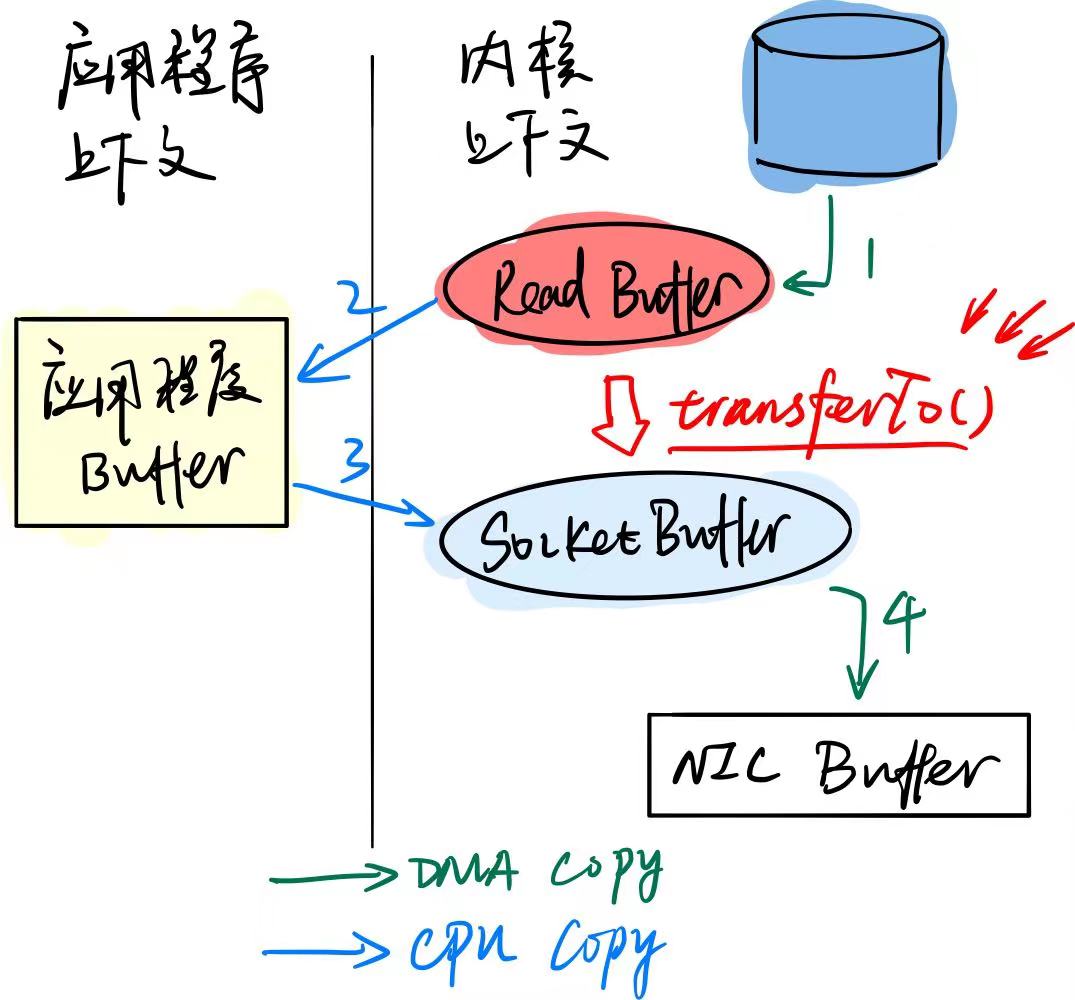 应用程序
上下文
内核
上下文
1
Read Buffer
2
应用程序
Buffer
transferTo()
3
Socket Buffer
4
NIC Buffer
DMA Copy
CPU Copy